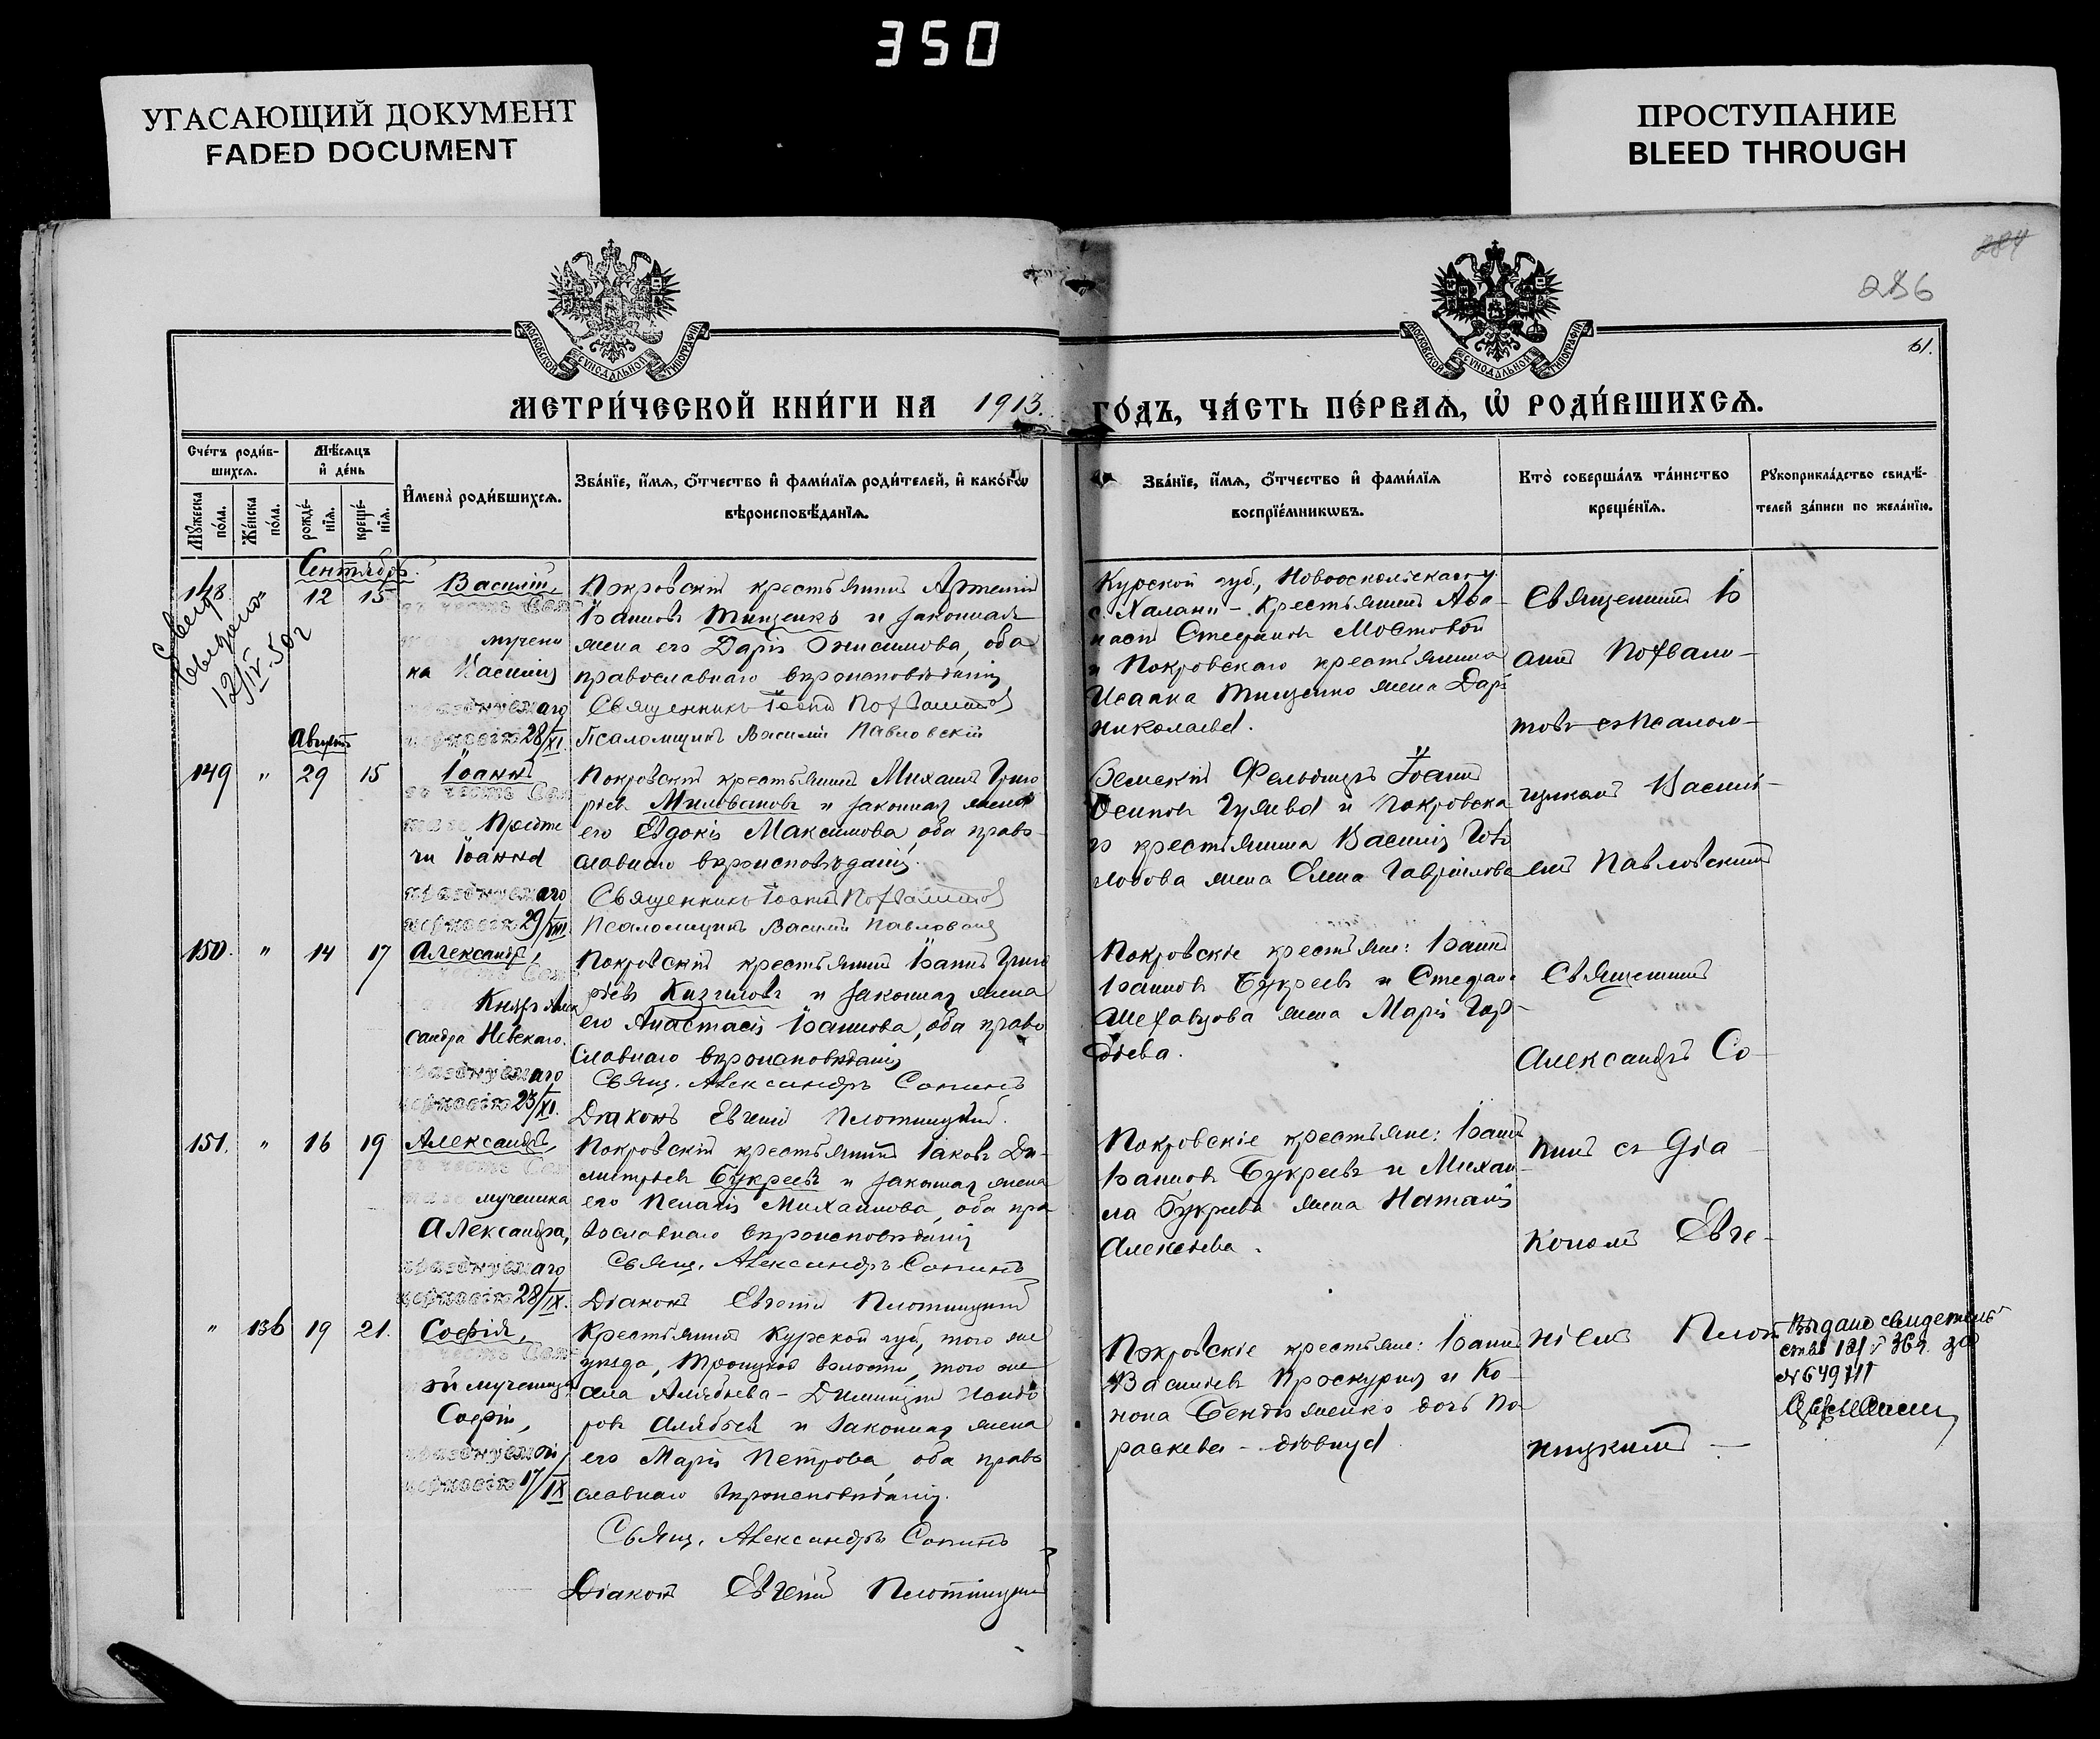 350
УГАСАЮЩИЙ ДОКУМЕНТ
FADED DOCUMENT
ПРОСТУПАНИЕ
BLEED THROUGH
284
286
61.
МОСКОВСКОЙ СѴНОДАЛЬНОЙ ТИПОГРАФІИ
МОСКОВСКОЙ СѴНОДАЛЬНОЙ ТИПОГРАФІИ
МЕТРИ́ЧЕСКОЙ КНИ́ГИ НА 1913. ГО́ДЪ, ЧА́СТЬ ПЕ́РВАѦ, Ѡ҆ РОДИ́ВШИХСѦ.
Сче́тъ роди́в-
шихсѧ.
Мꙋ́жеска по́ла.
Же́нска по́ла.
Мѣ́сѧцъ и҆ де́нь
рожде́-нїѧ.
креще́-нїѧ.
И҆мена̀ роди́вшихсѧ.
Зва́нїе, и҆́мѧ, ѻ҆́тчество и҆ фами́лїѧ роди́телей, и҆ како́гѡ
вѣроисповѣ́данїѧ.
Зва́нїе, и҆́мѧ, ѻ҆́тчество и҆ фами́лїѧ
воспрїе́мникѡвъ.
Кто̀ соверша́лъ та́инство
креще́нїѧ.
Рꙋкоприкла́дство свидѣ́-
телей за́писи по жела́нїю.
Сентябрь.
148. " 12 15
12/IV.50г
Василій,
мучени
ка Василія
празднуемаго
церковію 28/XI
Покровскій крестьянинъ Артемій
Іванновъ Тищенко и законная
жена его Дарія Онисимова, оба
православнаго вѣроисповѣданія
Священникъ Іоаннъ Похвалитовъ
Псаломщикъ Василій Павловскій
Курской губ., Новооскольскаго у.
с. Халани - крестьянинъ Аѳа-
насій Стефановъ Мостовой
и Покровскаго крестьянина
Исаака Тищенко жена Дарія
Николаева.
Священникъ Іо
аннъ Похвали-
товъ съ псалом-
Августъ
149 " 29 15
Іоаннъ
въ честь Свя
Предте
чи Іоанна
празднуемаго
церковію 29/VIII
Покровскій крестьянинъ Михаилъ Григо
рьевъ Миловановъ и законная жена
его Евдокія Максимова, оба право-
славнаго вѣроисповѣданія.
Священникъ Іоаннъ Похвалитовъ
Псаломщикъ Василій Павловскій
Земскій Фельдшеръ Іоаннъ
Осиповъ Гуляевъ и Покровска
го крестьянина Василія
жена Елена Гавріилова
щикомъ Васи-
ліемъ Павловскимъ
150. " 14 17
Александръ,
Князя Алек
сандра Невскаго.
празднуемаго
церковію 23/XI.
Покровскій крестьянинъ Іваннъ Григо
рьевъ Кизиловъ и законная жена
его Анастасія Іваннова, оба право
славнаго вѣроисповѣданія
Свящ. Александръ Сопинъ
Діаконъ Евгеній Плотницкій.
Покровскіе крестьяне: Іваннъ
Іванновъ Букреевъ и Стефана
жена Марія Гор-
дѣева.
Священникъ
Александръ Со-
151. " 16 19
Александръ,
въ честь Свя
мученика
Александра,
празднуемаго
церковію 28/IX.
Покровскій крестьянинъ Іаковъ Ди-
митріевъ Букреевъ и законная жена
его Пелагія Михаилова, оба пра
вославнаго вѣроисповѣданія
Свящ. Александръ Сопинъ
Діаконъ Евгеній Плотницкій
Покровскіе крестьяне: Іваннъ
Іванновъ Букреевъ и Михаи-
ла Букреева жена Наталія
Алексѣева.
пинъ съ діа-
кономъ Евге-
" 136 19 21.
Софія,
мученицы
Софіи,
празднуемой
церковію 17/IX
Крестьянинъ Курской губ., того же
уѣзда, Троицкой волости, того же
села Алябьева - Димитрій Исидо
ровъ Алябьевъ и законная жена
его Марія Петрова, оба право
славнаго вѣроисповѣданія.
Свящ. Александръ Сопинъ
Діаконъ Евгеній Плотницкій
Покровскіе крестьяне: Іваннъ
Васильевъ Проскурня и Ко-
нона Бендюженко дочь Па
раскева - дѣвица
ніемъ Плот
ницкимъ -
Выдано свидетель
ство